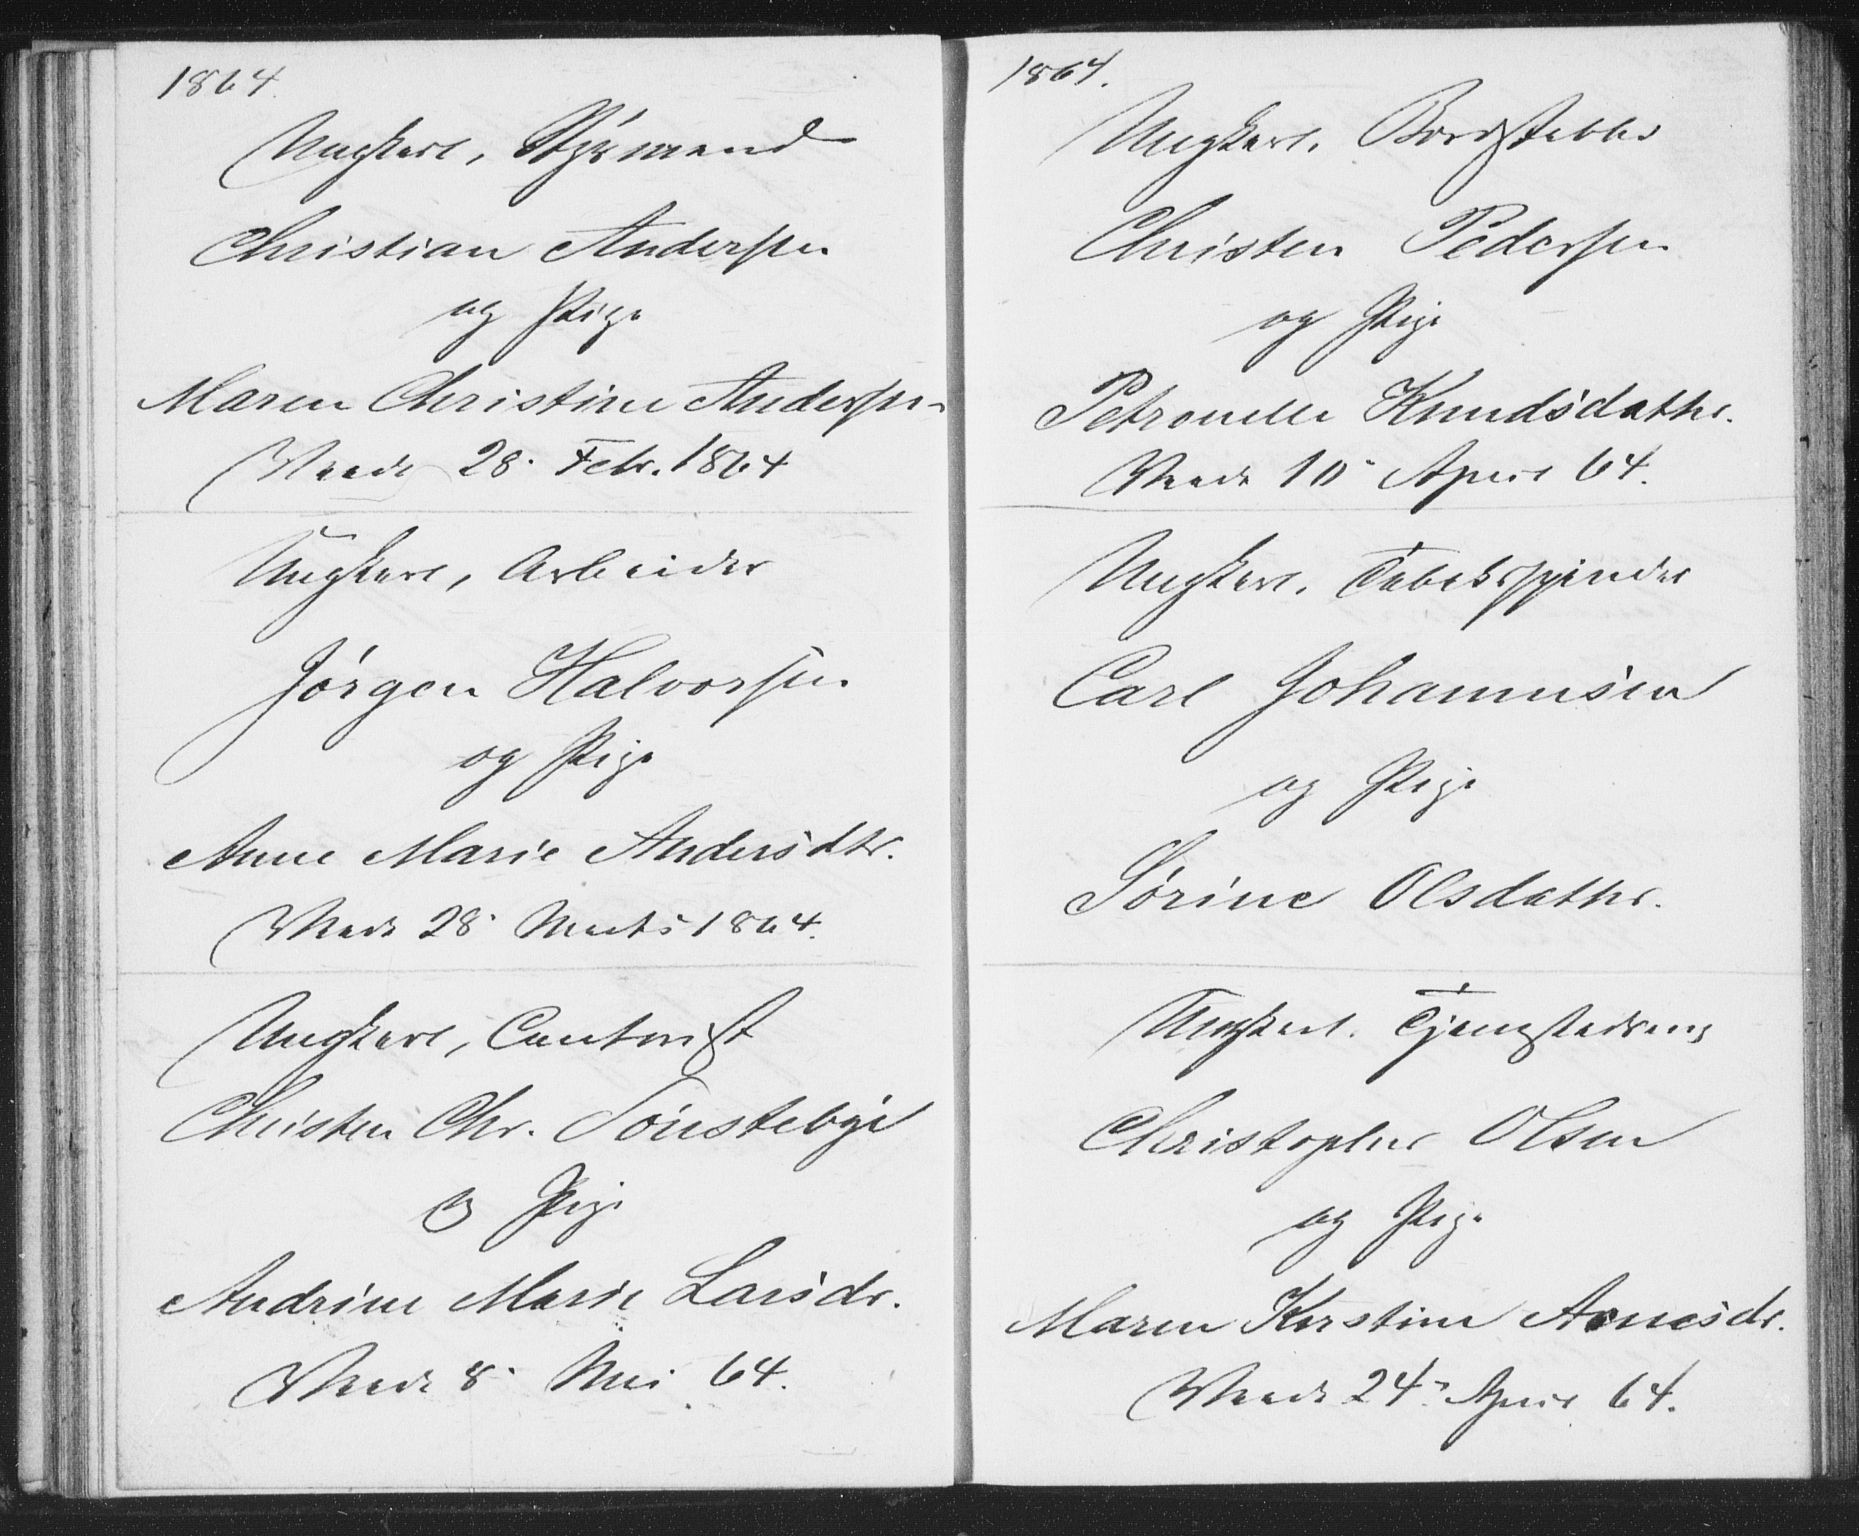 1864.
Ungkarl, Styrmand
Christian Anderssen
og Pige
Maren Christine Anderssen
Viede 28. Febr. 1864
Ungkarl, Arbeider
Jörgen Halvorssen
og Pige
Anne Marie Andersdtr.
Viede 28. Marts 1864.
Ungkarl, Contorist
Christen Chr. Sönstebye
og Pige
Andrine Marie Larsdr.
Viede 8. Mai 64.
1864.
Ungkarl, Bordstabler
Christen Pederssen
og Pige
Petronelle Knudsdatter.
Viede 10. April 64.
Ungkarl, Tobaksspinder
Carl Johannsen
og Pige
Sörine Olsdatter.
Ungkarl. Tjenestedreng
Christopher Olsen
og Pige
Maren Kirstine Arnesdr.
Viede 24. April 64.